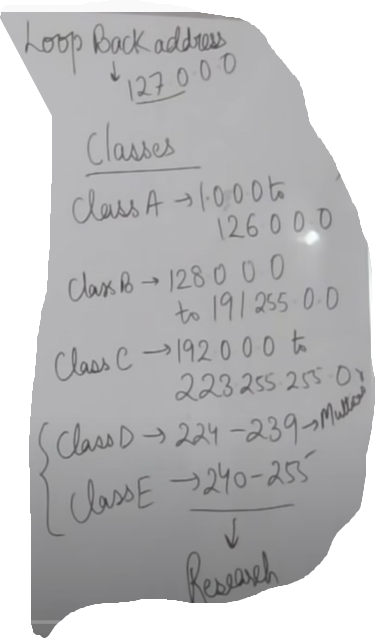 Loop Back address
↓ 127.0.0.0
Classes
Class A → 1.0.0.0 to
126.0.0.0
Class B → 128.0.0.0
to 191.255.0.0
Class C → 192.0.0.0 to
223.255.255.0
Class D → 224-239 →
Class E → 240-255
↓
Research